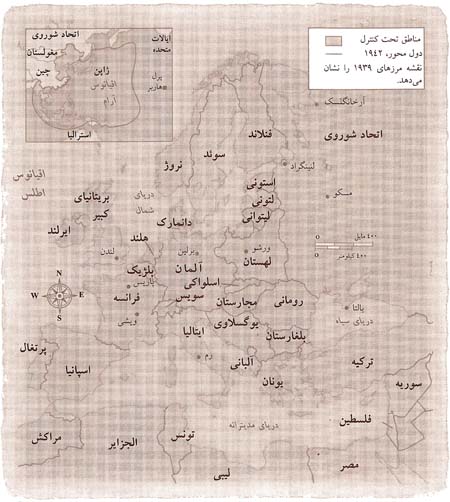 مناطق تحت کنترل
دول محور، ۱۹۴۲
نقشه مرزهای ۱۹۳۹ را نشان
می‌دهد.
اتحاد شوروی
مغولستان
چین
ژاپن
اقیانوس
آرام
ایالات
متحده
پرل
هاربر
استرالیا
آرخانگلسک
اتحاد شوروی
فنلاند
سوئد
نروژ
لنینگراد
استونی
لتونی
لیتوانی
مسکو
اقیانوس
اطلس
بریتانیای
کبیر
دریای
شمال
دانمارک
ایرلند
هلند
لندن
برلین
ورشو
لهستان
۴۰۰ مایل
۰
۰
۴۰۰ کیلومتر
بلژیک
آلمان
پاریس
اسلواکی
فرانسه
سویس
مجارستان
رومانی
یالتا
دریای سیاه
ویشی
ایتالیا
یوگسلاوی
بلغارستان
N
W
E
S
پرتغال
اسپانیا
رم
آلبانی
یونان
ترکیه
سوریه
فلسطین
دریای مدیترانه
مراکش
الجزایر
تونس
لیبی
مصر